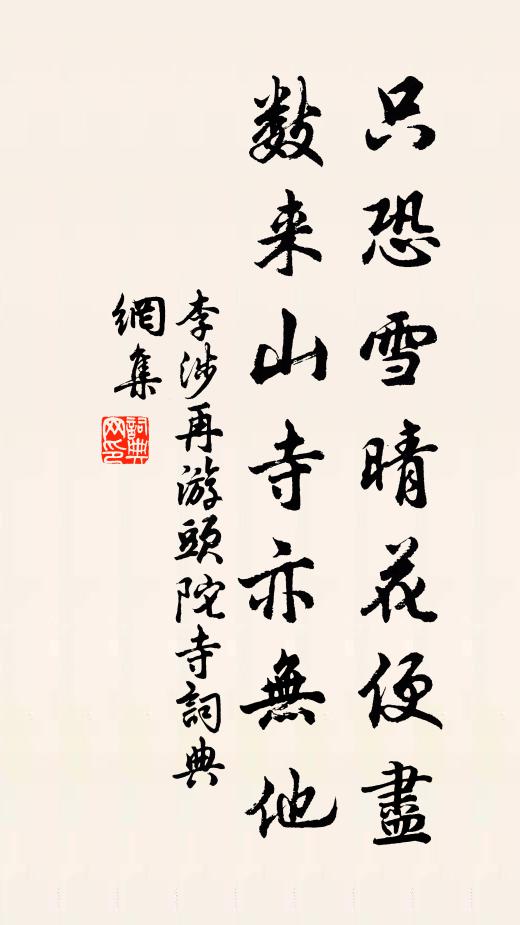 只恐雪晴花便盡
数来山寺亦無他
李涉再游頭陀寺詞典
網集
詞典
网印